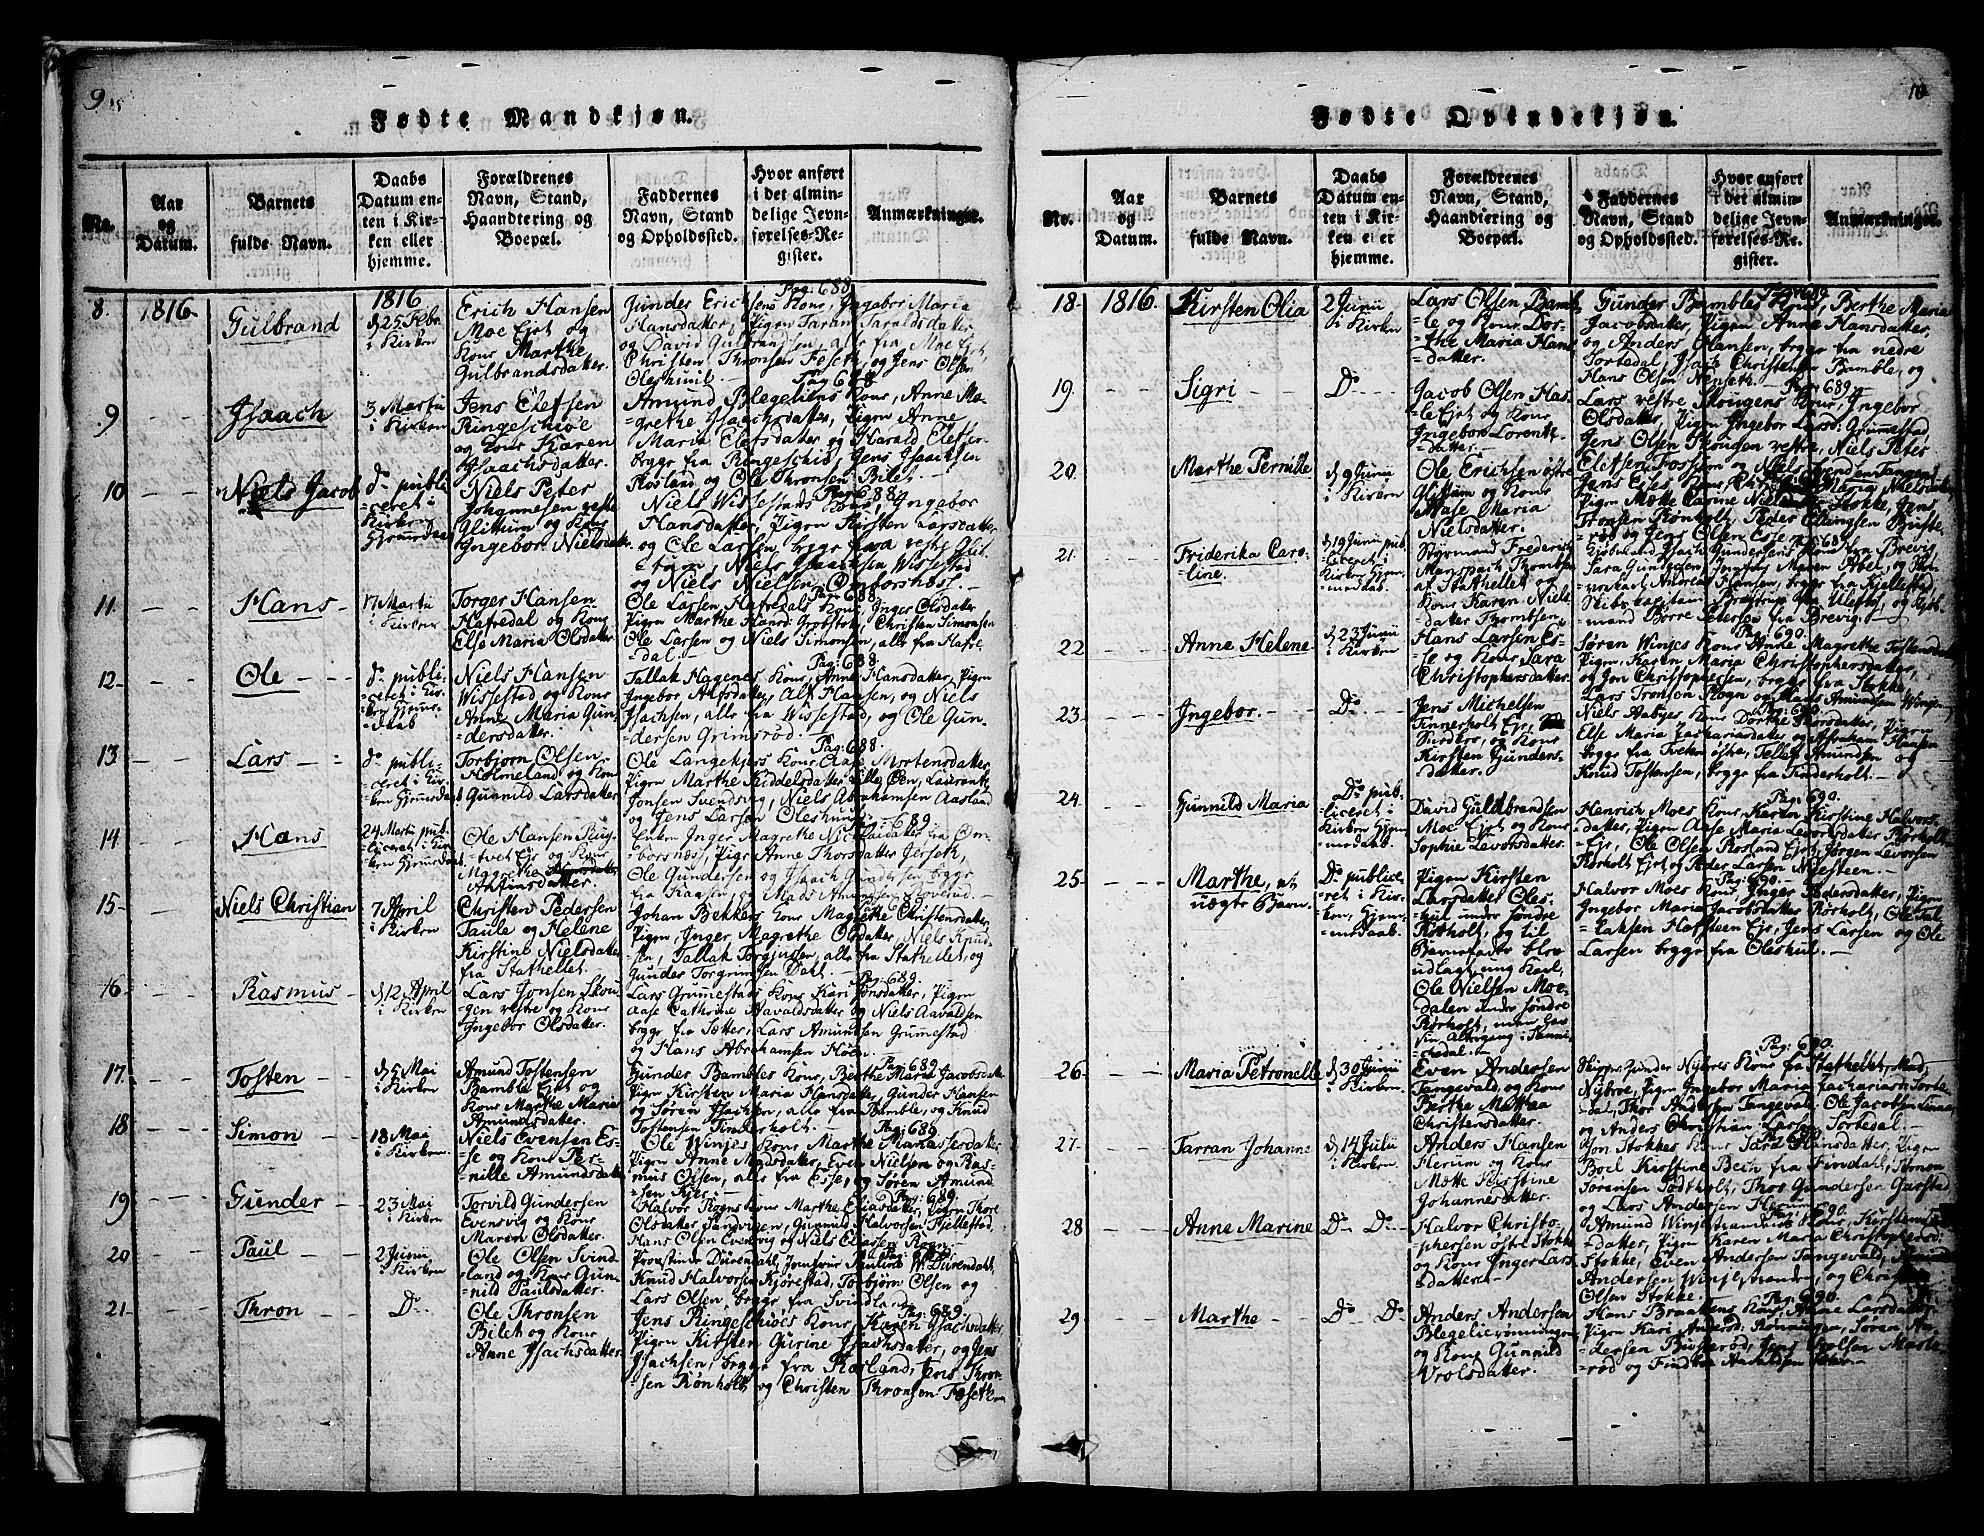 9
Fødte Mandkjøn.
No.
Aar og Datum.
Barnets fulde Navn.
Daabs Datum enten i Kirken eller hjemme.
Forældrenes Navn, Stand, Haandtering og Boepæl.
Faddernes Navn, Stand og Opholdssted.
Hvor anført i det almindelige Jevnførelses-Register.
Anmærkninger.
8. 1816. Gulbrand
1816
d 25 Febr
i Kirken
Erich Hansen
Moe Ejet og
Kone Marthe
Gulbrandsdatter.
Pag: 688
Gunder Erichsens Kone, Ingebor Maria
Hansdatter, Pigen Taran Taraldsdatter
og David Gulbrandsen, alle fra Moe Ejet,
Christen Thronsen Feseth, og Jens Olsen
Oleshuul.
9 Isaach
3 Martii
i Kirken
Jens Elefsen
Ringeschiøe
og Kone Karen
Isaachsdatter.
Pag 688
Amund Blegeliens Kone, Anne Ma-
grethe Isaachsdatter, Pigen Anne
Maria Elefsdatter og Harald Elefsen
begge fra Ringeschiø, Jens Isaachsen
Rosland og Ole Thronsen Bilet.
10 Niels Jacob
do publi
ceret i
Kirken
Niels Peter
Johannesen vestre
Glittum og Kone
Ingebor Nielsdatter.
Pag 688
Niels Wissestads Kone, Ingebor
Hansdatter, Pigen Kirsten Larsdatter
og Ole Larsen, begge fra vestre Glit-
tum, Niels Isaachsen Wissestad
og Niels Nielsen Omborsnæs.
11. Hans
17 Martii
i Kirken
Torger Hansen
Hafredal og Kone
Else Maria Olsdatter.
Pag: 688.
Ole Larsen Hafredals Kone, Inger Olsdatter
Pigen Marthe Hansd: Grobstok, Christen Simonsen
Ole Larsen og Niels Simonsen, alle fra Hafre-
dal.
12. Ole
do publi-
ceret i Kir-
Niels Hansen
Wissestad og Kone
Anne Maria Gun
dersdatter.
Pag: 688.
Tallak Hagenes Kone, Anne Hansdatter, Pigen
Ingebor Alfsdatter, Alf Hansen, og Niels
Isachsen, alle fra Wissestad, og Ole Gun-
dersen Grimsrød.
13. Lars
do publi-
ceret i Kir-
Torbjørn Olsen
Holmeland og Kone
Gunnild Larsdatter.
Pag: 688.
Ole Langekjers Kone, Aase Mortensdatter
Pigen Marthe Kiddelsdatter Lille Øen, Laurents
Jonsen Svendsvig, Niels Abrahamsen Aasland
og Jens Larsen Oleshuul
14 Hans
24 Martii pub
liceret i Kir
Ole Hansen Rug-
tvet Ejr og Kone
Magrethe
Pag 689.
Enken Inger Magrethe Nicolaidatter fra Om-
borsnæs, Pigen Anne Thorsdatter Jerseth,
Ole Gundersen og Isach Gundersen begge
fra Kaasen og Mads Amundsen Rovnind
15 Niels Christian
7 April
i Kirken
Christen Pedersen
Taule og Helene
Kirstine Nielsdatter
fra Stathellet.
Pag: 689.
Johan Bekkers Kone Magrethe Christensdatter,
Pigen Inger Magrethe Olsdatter, Niels Knud-
sen, Tallak Torgjussen, alle fra Stathellet, og
Gunder Torgrimsen Dahl.
16 Rasmus
d 12 April
i Kirken
Lars Jonsen Skou
gen vestre og Kone
Ingebor Olsdatter.
Pag: 689.
Lars Grumestads Kone Kari Jonsdatter, Pigen
Aase Cathrine Havaldsdatter og Niels Aavaldsen
begge fra Sætter, Lars Amundsen Grumestad
og Hans Abrahamsen Höen.
17. Tosten
d 5 Mai
i Kirken
Amund Tostensen
Bamble Ejet og
Kone Marthe Maria
Amundsdatter.
Pag: 689.
Gunder Bambles Kone, Berthe Maria Jacobsdatter
Pigen Kirsten Maria Hansdatter, Gunder Hansen
og Søren Isachsen, alle fra Bamble, og Knud
Tostensen Tinderholt.
18 Simon
18 Mai
i Kirken
Niels Evensen Es-
se og Kone Per-
nille Amundsdatter
Pag: 689
Ole Winjes Kone Marthe Manassesdatter
Pigen Anne Madsdatter, Even Nielsen og Ras-
mus Olsen, alle fra Esse, og Søren Amund
sen Kjer.
19 Gunder
23 Mai
i Kirken
Torvild Gundersen
Evensvig og Kone
Maren Olsdatter.
Pag: 689.
Halvor Rogns Kone Marthe Eliasdatter, Pigen Thore
Olsdatter Sandvigen, Gunnuld Halvorsen Fjellestad,
Hans Olsen Evensvig og Niels Eliesen Rogn.
20 Paul
2 Junii
i Kirken
Ole Olsen Svind
land og Kone Gun-
nild Paulsdatter.
Provstinde Dürendahl, Jomfrue Pauline W. Dürendahl,
Knud Halvorsen Kjørestad, Torbjørn Olsen og
Lars Olsen, begge fra Svindland.
21 Thron
Do
Ole Thronsen
Bilet og Kone
Anne Isachsdatter.
Pag 689.
Jens Ringeschiøes Kone, Karen Isachsdatter
Pigen Kirsten Gurine Isachsdatter, og Jens
Isachsen, begge fra Rosland, Jens Thron
sen Rønholt og Christen Thronsen Foseth
10
Fødte Qvindekjøn.
No.
Aar og Datum.
Barnets fulde Navn.
Daabs Datum enten i Kirken eller hjemme.
Forældrenes Navn, Stand, Haandtiering og Boepæl.
Faddernes Navn, Stand og Opholdssted.
Hvor anført i det almindelige Jevnførelses-Register.
Anmærkninger.
18. 1816. Kirsten Olia
2 Junii
i Kirken
Lars Olsen Bamb
le og Kone Dor-
the Maria Hans
datter.
Pag 689
Gunder Bambles Kone, Berthe Maria
Jacobsdatter, Pigen Anne Hansdatter,
og Anders Hansen, begge fra nedre
Tortedal, Isach Christensen Bamble, og
Hans Olsen Nenseth.
19. Sigri
Do
Jacob Olsen Has-
le Ejet og Kone
Ingebor Lorents-
datter.
Pag: 689.
Lars vestre Skougens Kone, Ingebor
Olsdatter, Pigen Ingebor Larsd: Grumestad
Jens Olsen Skougen vestre, Niels Peter
20. Marthe Pernille
d 9 Junii
i Kirken
Ole Erichsen østre
Glittum og Kone
Aase Maria
Nielsdatter.
Pigen Mette Carine Niels Stokke, Jens
Rønholt, Peder Ellingsen
21. Friderika Caro-
line.
d 19 Junii pub
liceret i
Styrmand Frederich
Monspach Thomsen
af Stathellet og
Kone Karen Niels
datter Thomsen
Pag 689
Kjøbmand Isach Gundersens Kone fra Brevig
Sara Gundersen, Jomfru Maren Abel,
Andreas Hansen, begge fra Fjellestad,
mand Børre Petersen fra Brevig.
22 Anne Helene
d 23 Junii
i Kirken
Hans Larsen Es-
se og Kone Sara
Christophersdatter.
Pag: 690.
Søren Winjes Kone Anne Magrethe Tostensdatter
Pigen Karen Maria Christophersdatter,
og Jon Christophersen, begge fra Stokke,
Lars Tronsen Rogn og Mads Amundsen Winje
23. Ingebor.
Do
Jens Michelsen
Tinnerholt Ejr,
og Kone
Kirsten Gunders-
datter.
Pag: 690.
Niels Aabyes Kone Dorthe Larsdatter, Pigen
Else Maria Zachariasdatter og Abraham Hansen
begge fra Tveten østre, Tellef Amundsen og
Knud Tostensen, begge fra Tinderholt.
24. Gunnild Maria
Do pub-
liceret i
Kirken
David Guldbrandsen
Moe Ejet og Kone
Sophie Levorsdatter.
Pag: 690.
Henrich Moes Kone, Karen Kirstine Halvors-
datter, Pigen Aase Maria Levorsdatter Rørholt
Ejr, Ole Olsen Rosland Ejet, Jørgen Levorsen
Rørholt Ejet og Peder Larsen Nysteen.
25. Marthe, et
uægte Barn.
Do publice-
ret i Kir-
Pigen Kirsten
Larsdatter Oles-
huul under søndre
Rørholt, og til
Barnefader blev
udlagt ung Karl,
Ole Nielsen Moe-
dalen under søndre
Rørholt,
Pag: 690.
Halvor Moes Kone Inger Pedersdatter, Pigen
Ingebor Maria Jacobsdatter Rørholt, Ole Tal-
laksen Hafsteen Ejr, Jens Larsen og Ole
Larsen begge fra Oleshuul.
26 Maria Petronelle
d 30 Junii
i Kirken
Even Andersen
Tangevald, og Kone
Berthe Mathea
Christensdatter.
Pag: 690.
Skipper Gunder Nyeres Kone fra Stathellet, Mad,
Nybroe, Pigen Ingebor Maria Zachariasd: Torte-
dal, Thor Andersen Tangevald, Ole Jacobsen
og Anders Christian Larsen Tortedal.
27. Tarran Johanne
d 14 Julii
i Kirken
Anders Hansen
Herum og Kone
Mette Kirstine
Johannesdatter.
Jon Stokkes Kone Sara Hansdatter, Pigen
Boel Kirstine Beth fra Findal, Simon
Sørensen Tødtholt, Thor Gundersen Garstad
og Lars Andersen Herum.
28 Anne Marine
Do Do
Halvor Christo-
phersen østre Stokke
og Kone Inger Lars
datter.
Amund Winjestrandens Kone, Kirsten
datter, Pigen Karen Maria Christophersd:
Stokke, Even Andersen Tangevald,
Andersen Winjestranden, og Christen
Olsen Stokke.
29 Marthe
Do Do
Anders Andersen
Blegelierønningen
og Kone Gunnild
Vrolsdatter.
Pag: 690.
Hans Braatens Kone, Anne Larsdatter
Pigen Kari Anderød: Rønningen, Søren An-
dersen Bustrød, Jens
rød og Findor Aaraldsen